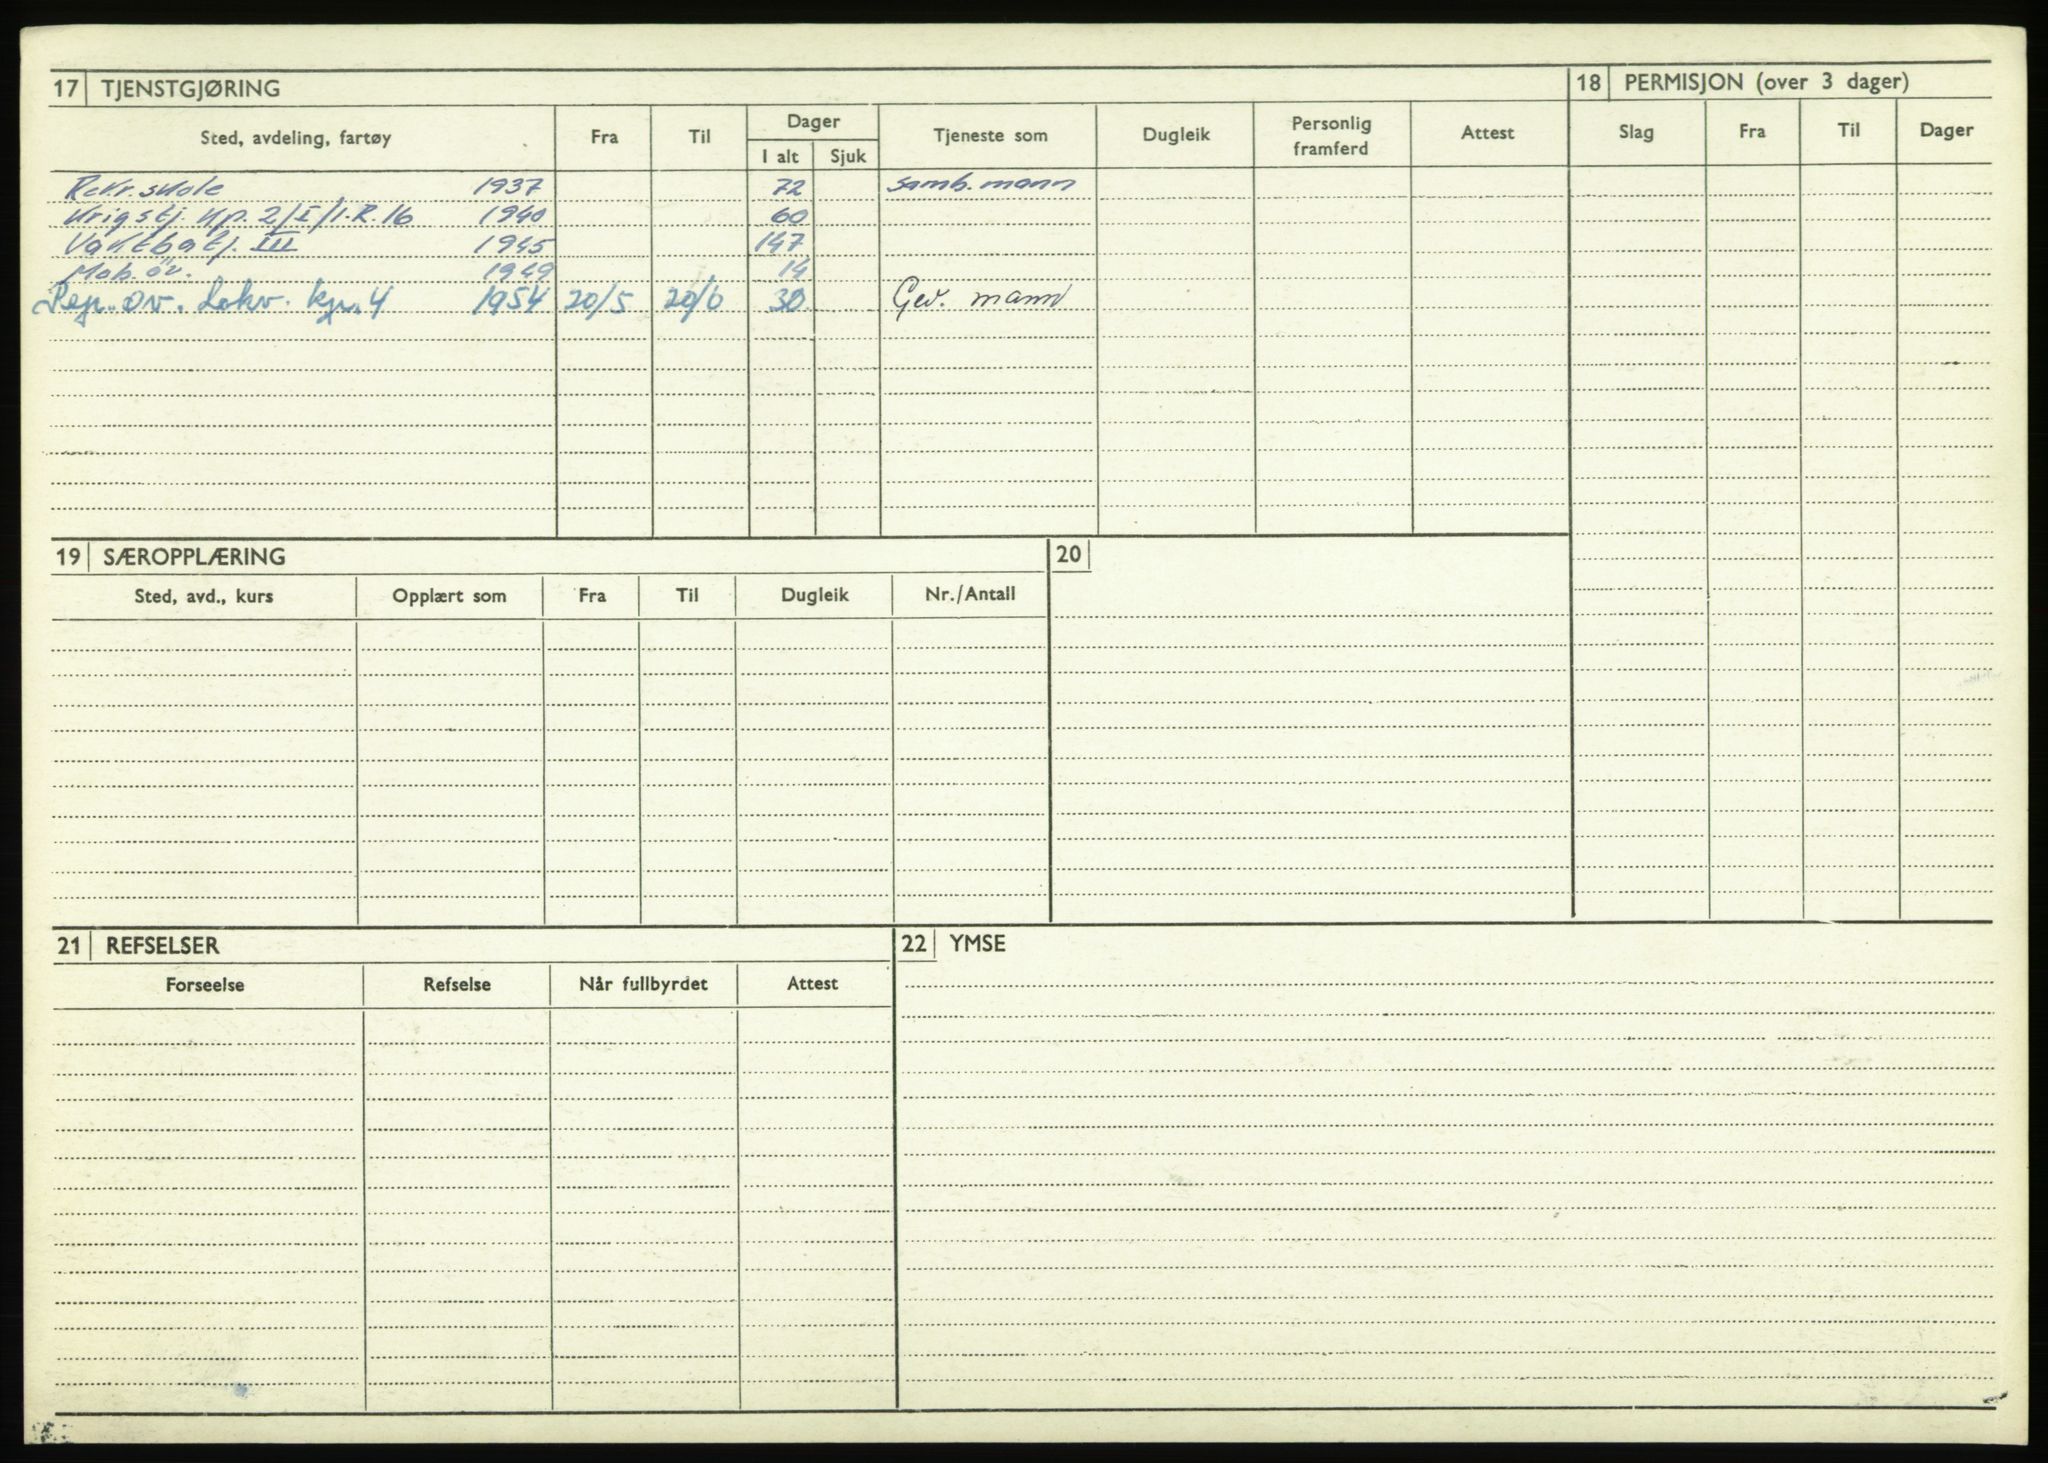 17 TJENSTGJØRING
18 PERMISJON (over 3 dager)
Sted, avdeling, fartøy Fra Til Dager Tjeneste som Dugleik Personlig framferd Attest Slag Fra Til Dager
I alt Sjuk
Rekr.skole 1937 72 samb.mann
Krigstj. Kp. 2/I/I.R.16 1940 60
Vaktbatj. III 1945 147
Mob.öv. 1949 14
Rep.øv. Lokv. kp. 4 1954 20/5 20/6 30 Gev. mann
19 SÆROPPLÆRING
20
Sted, avd., kurs Opplært som Fra Til Dugleik Nr./Antall
21 REFSELSER
22 YMSE
Forseelse Refselse Når fullbyrdet Attest